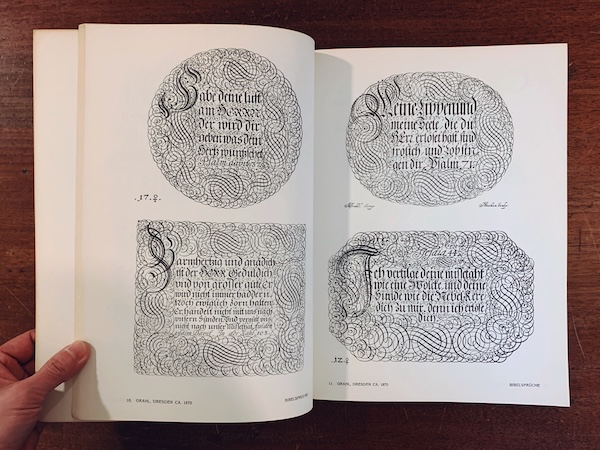 Habe deine lust
am HERRN
der wird dir
geben was dein
Hertz wünschet.
.17.
Barmhertzig und gnädich
ist der HERR Geduldich
und von grosser güte Er
wird nicht immer hadder n
noch ewiglich Zorn halten
Er handelt nicht mit uns nach
unsern Sünden, Und
nicht nach unser Missetat.
10. GRAHL, DRESDEN CA. 1670
BIBELSPRÜCHE
Meine Lippen und
meine Seele, die du
HErr erlöset hast sind
frölich, und lobsin
gen dir, Psalm 71.
Ich vertilge deine missetaht
wie eine Wolcke, und deine
Sünde wie die Nebel Kere
dich zu mir, denn ich erlöse
dich
11. GRAHL, DRESDEN CA. 1670
BIBELSPRÜCHE